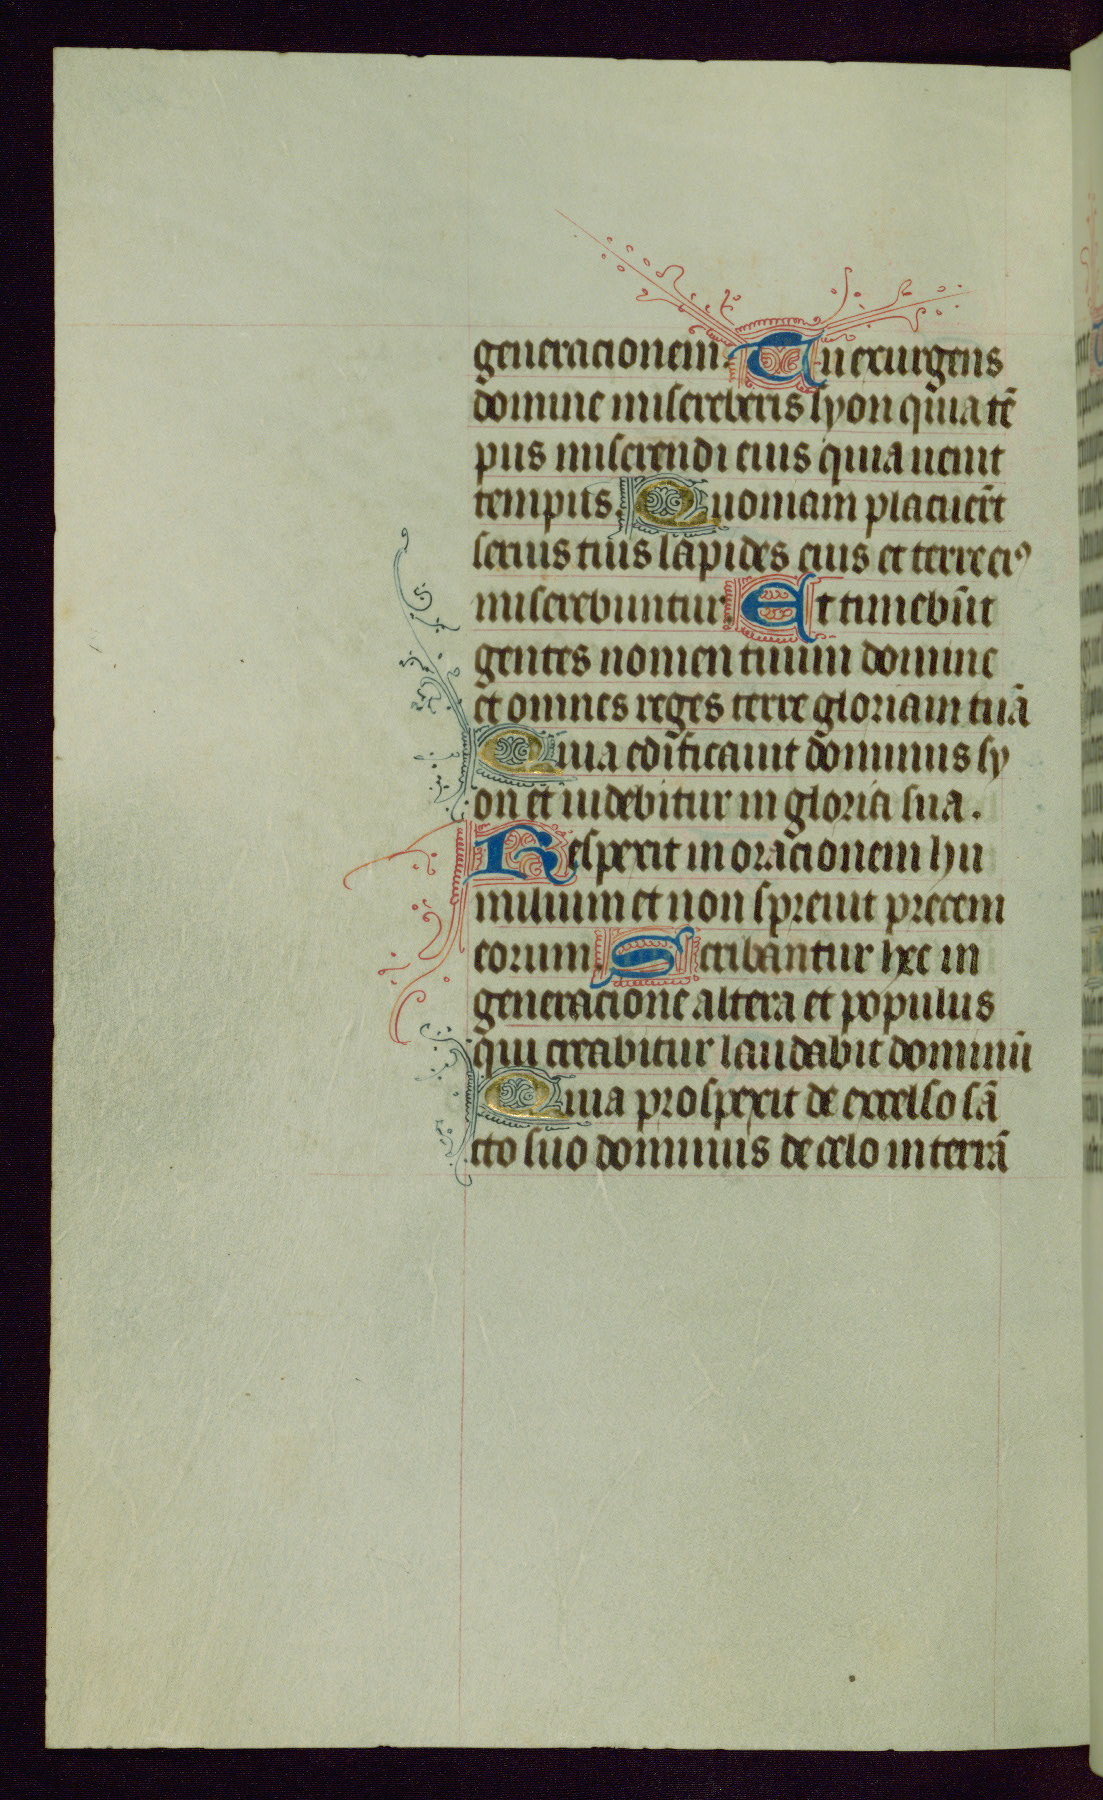 generacionem. Tu exurgens
domine misereberis syon quia tẽ
pus miserendi eius quia uenit
tempus. Quoniam placuer̃t
seruis tuis lapides eius et terre ei⁹
miserebuntur. Et timebũt
gentes nomen tuum domine
et omnes reges terre gloriam tuã
Quia edificauit dominus sy
on et uidebitur in gloria sua.
Respexit in oracionem hu
milium et non spreuit precem
eorum. Scribantur hec in
generacione altera et populus
qui creabitur laudabit dominũ
Quia prospexit de excelso sã
cto suo dominus de celo in terrã